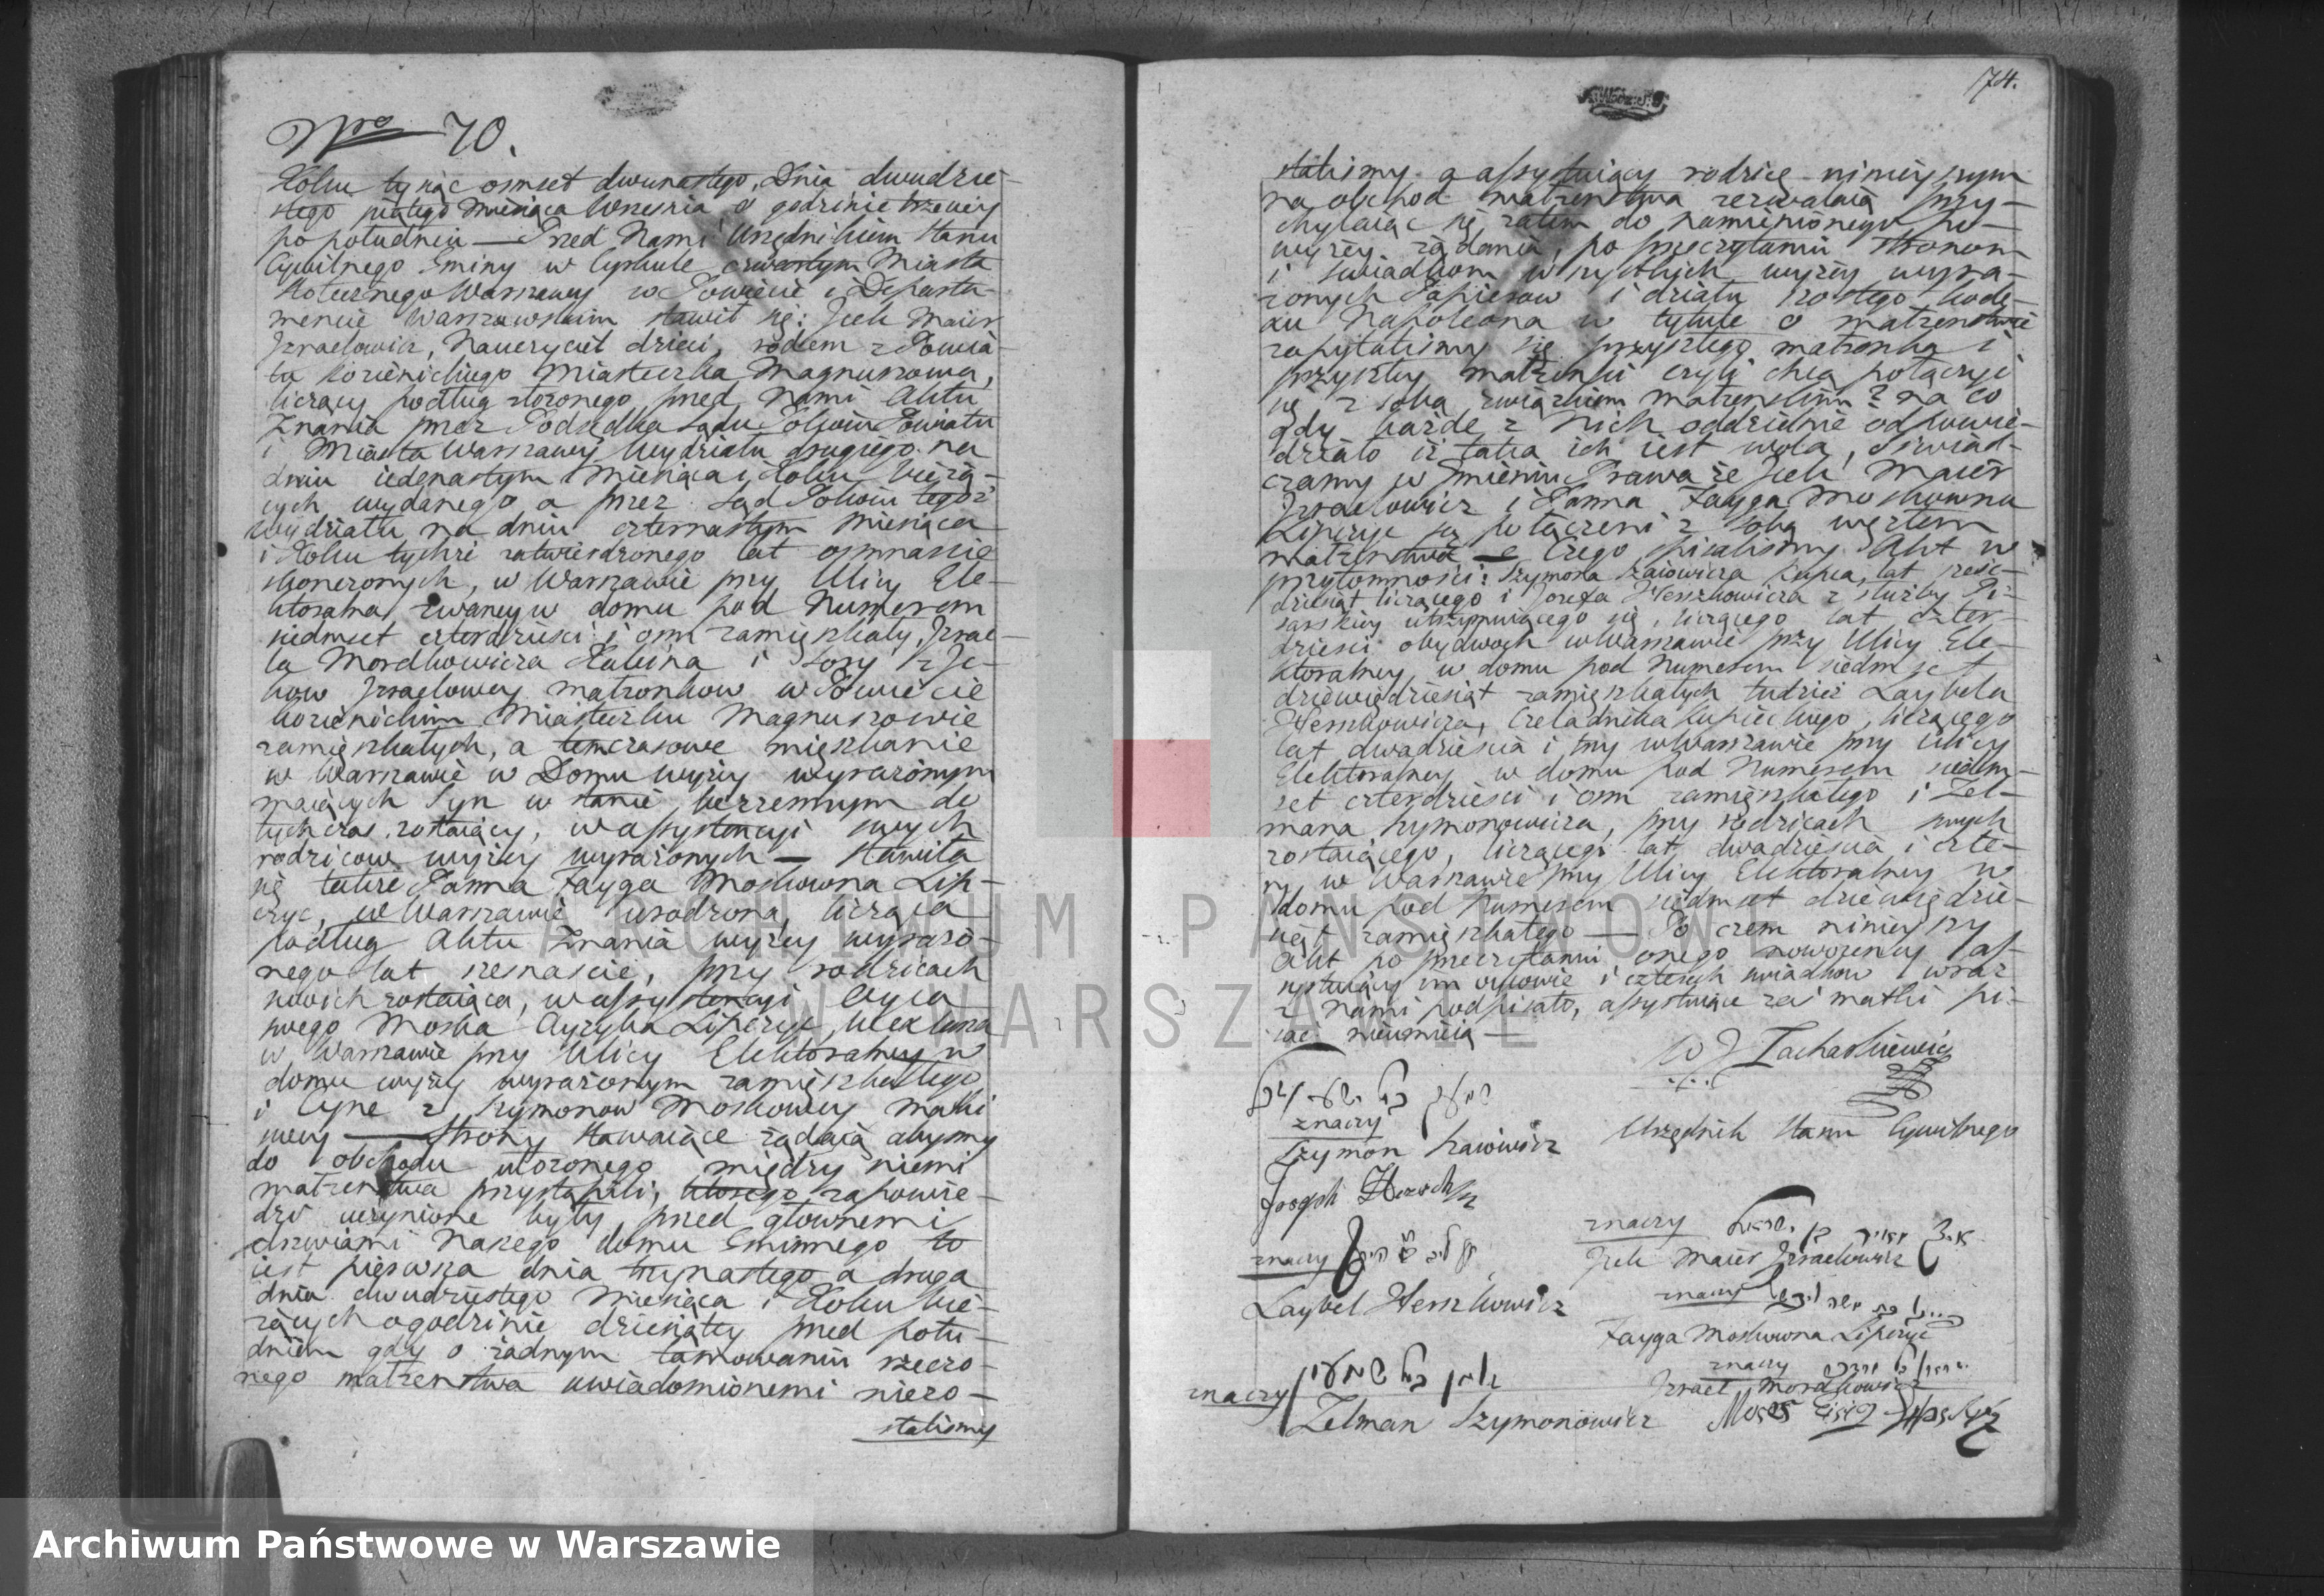 Nro 70.
Roku tysiąc osmset dwunastego, Dnia dwudzie-
stego piątego Miesiąca Wrzesnia, o godzinie trzeciey
po południu — Przed Nami Urzędnikiem Stanu
Cywilnego Gminy w Cyrkule czwartym Miasta
Stołecznego Warszawy w Powiecie i Departa-
mencie Warszawskim stawił się: Icek Maier
Izraelowicz, Nauczyciel dzieci, rodem z Powia-
tu Kozienickiego Miasteczka Magnuszowa,
liczący podług złożonego przed Nami Aktu
Znania przez Podsędka Sądu Pokoiu Powiatu
i Miasta Warszawy Wydziału drugiego na
dniu iedenastym Miesiąca i Roku bieżą-
cych wydanego a przez Sąd Pokoiu tegoż
Wydziału na dniu czternastym Miesiąca
i Roku tychże zatwierdzonego lat osmnaście
skończonych, w Warszawie przy Ulicy Ele-
ktoralna zwaney w domu pod Numerem
siedmset czterdzieści i osm zamięszkały, Izrae-
la Mordkowicza Rabina i Sory z Ic-
kow Izraelowey małżonkow w Powiecie
Kozienickim Miasteczku Magnuszowie
zamięszkałych, a temczasowe mięszkanie
w Warszawie w Domu wyżey wyrażonym
maiących Syn w stanie bezżennym do
tychczas zostaiący, w assystencyi swych
rodzicow wyżey wyrażonych — stawiła
się także Panna Fayga Moskowna Lip-
czyc, w Warszawie urodzona, licząca
podług Aktu Znania wyżey wyrażo-
nego lat szesnaście, przy rodzicach
swoich zostaiąca, w assystencyi Oyca
swego Moska Ayzyka Lipczyc, Wexlarza
w Warszawie przy Ulicy Elektoralney w
domu wyżey wyrażonym zamięszkałego
i Cyne z Szymonow Moskowey matki
swey — Strony stawaiące żądaią abyśmy
do obchodu ułożonego między niemi
małżeństwa przystąpili, którego zapowie-
dzi uczynione były przed głównemi
drzwiami Naszego domu Gminnego to
iest pierwsza dnia trzynastego a druga
dnia dwudziestego Miesiąca i Roku bie-
żących o godzinie dziesiątey przed połu-
dniem gdy o żadnym tamowaniu rzeczo-
nego małżeństwa uwiadomionemi niezo-
staliśmy
74.
staliśmy a assystuiący rodzice ninieyszym
na obchod małżeństwa zezwalaią przy-
chylaiąc się zatem do namienionego po-
wyżey żądania, po przeczytaniu stronom
i świadkom wszystkich wyżey wyra-
żonych Papierow i działu szostego Kode-
xu Napoleona w tytule o małżeństwie
zapytaliśmy się przyszłego małżonka i
przyszłey małżonki czyli chcą połączyć
się z sobą związkiem małżeńskim? na co
gdy każde z Nich oddzielnie odpowie-
działo iż taka ich iest wola, Oświad-
czamy w Imieniu Prawa że Icek Maier
Izraelowicz i Panna Fayga Moskowna
Lipczyc są połączeni z sobą węzłem
małżeństwa — Czego spisaliśmy Akt w
przytomności: Szymona Szaiowicza Kupca, lat sześć-
dziesiąt liczącego i Josefa Herszkowicza z służby Pi-
sarskiey utrzymuiącego się, liczącego lat czter-
dzieści obydwoch w Warszawie przy Ulicy Ele-
ktoralney w domu pod Numerem siedmset
dziewięćdziesiąt zamięszkałych tudzież Laybela
Herszkowicza, Czeladnika kupieckiego, liczącego
lat dwadzieścia i trzy w Warszawie przy Ulicy
Elektoralney w domu pod Numerem siedm-
set czterdzieści i osm zamięszkałego i Zel-
mana Szymonowicza, przy rodzicach swych
zostaiącego, liczącego lat dwadzieścia i czte-
ry w Warszawie przy Ulicy Elektoralney w
domu pod Numerem siedmset dziewięćdzie-
siąt zamięszkałego — Po czem ninieyszy
Akt po przeczytaniu onego nowożency as-
systuiący im oycowie i czterech świadkow wraz
z Nami podpisało, assystuiące zaś matki pi-
sać nieumieią —
Zachariewicz
Urzędnik Stanu Cywilnego
znaczy
Szymon Szaiowicz
Joseph Hersch
znaczy
Laybel Herszkowicz
znaczy
Zelman Szymonowicz
znaczy
Icek Maier Izraelowicz
znaczy
Fayga Moskowna Lipczyc
znaczy
Izrael Mordkowicz
Moses Eisig
ARCHIWUM PAŃSTWOWE
W WARSZAWIE
Archiwum Państwowe w Warszawie